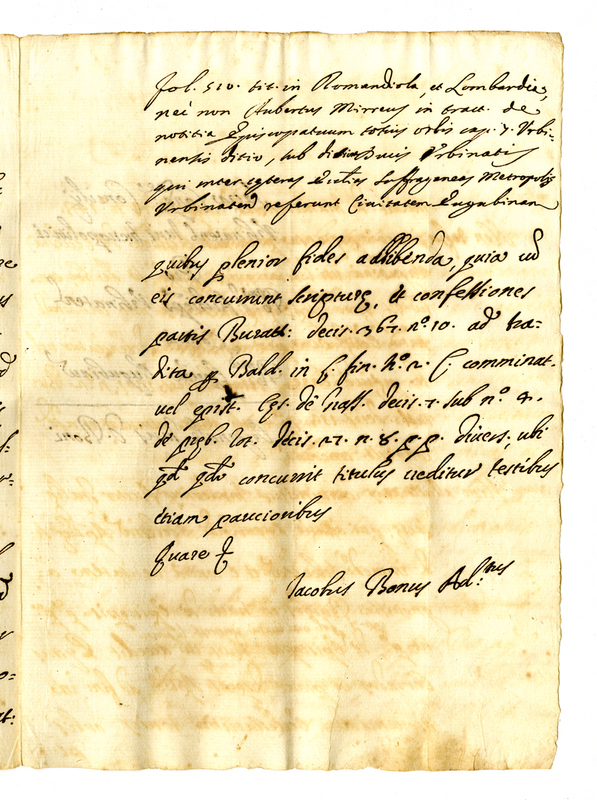 fol. 510. tit. in Romandiola, et Lombardia,
nec non Aubertus Mirreus in tract. de
notitia Episcopatuum totius orbis cap. 7. Urbi-
nensis ditio, sub Urbinatis
qui inter cęteras Ecclias suffraganeas Metropolis
Urbinaten referunt Civitatem Eugubinam
quibus plenior fides adhibenda, quia ubi
eis concurrunt scripturę, et confessiones
partis Buratt: decis. 367. nº. 10. ad tra-
dita p Bald. in l. fin. nº. 2. C. comminat.
vel epist. decis. 7. sub nº. 4.
de prob. Rot. decis. 27. n. 8. p. p. divers. ubi
qd concurrit titulus creditur testibus
etiam paucioribus
Quare
Jacobus Bonus Ad.tus